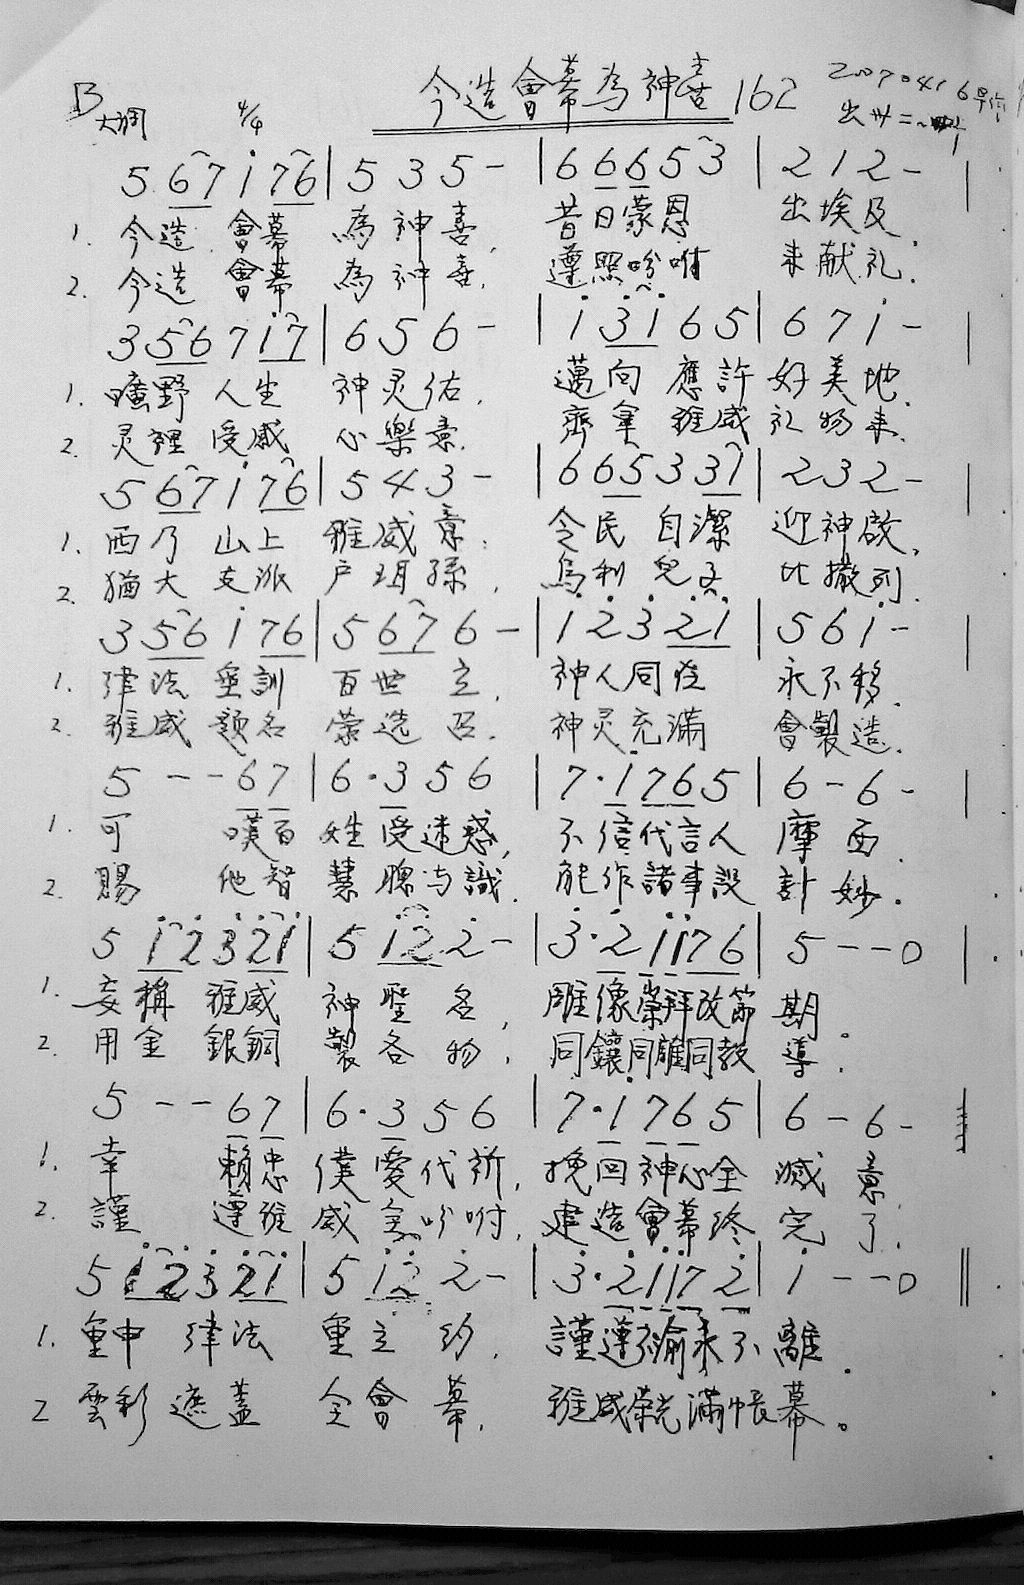 今造會幕為神喜 162
B大調 4/4
5 6 7 1 7 6 | 5 3 5 - | 6 6 6 5 3 | 2 1 2 - |
1. 今造 會幕 為神喜, 昔日蒙恩 出埃及.
2. 今造 會幕 為神喜. 遵照吩咐 来献礼.
3 5 6 7 1 7 | 6 5 6 - | 1 3 1 6 5 | 6 7 1 - |
1. 曠野 人生 神灵佑. 邁向 應許 好美地.
2. 灵裡 受感 心樂意. 齊拿 雅威 礼物来.
5 6 7 1 7 6 | 5 4 3 - | 6 6 5 3 3 1 | 2 3 2 - |
1. 西乃 山上 雅威意. 令民 自潔 迎神啟,
2. 猶大 支派 户珥孫, 烏利 兒子 比撒列.
3 5 6 1 7 6 | 5 6 7 6 - | 1 2 3 2 1 | 5 6 1 - |
1. 律法 垂訓 百世立, 神人同住 永不移.
2. 雅威 題名 蒙选召. 神灵充滿 會製造.
5 - - 6 7 | 6 · 3 5 6 | 7 · 1 7 6 5 | 6 - 6 - |
1. 可 嘆百姓受迷惑, 不信代言人 摩西.
2. 賜 他智慧聰与識. 能作諸事設計妙.
5 1 2 3 2 1 | 5 1 2 2 - | 3 · 2 1 1 7 6 | 5 - - 0 |
1. 妄稱 雅威 神聖名, 雕像崇拜改節期.
2. 用金 銀銅 製各物, 同鑲同雕同教導.
5 - - 6 7 | 6 · 3 5 6 | 7 · 1 7 6 5 | 6 - 6 - |
1. 幸 賴忠僕愛代祈, 挽回神心全滅意.
2. 謹 遵雅威全吩咐, 建造會幕终完了.
5 1 2 3 2 1 | 5 1 2 2 - | 3 · 2 1 1 7 2 | 1 - - 0 ||
1. 重申 律法 重立约, 謹遵不渝永不離.
2 雲彩 遮蓋 全會幕, 雅威荣光滿帳幕。